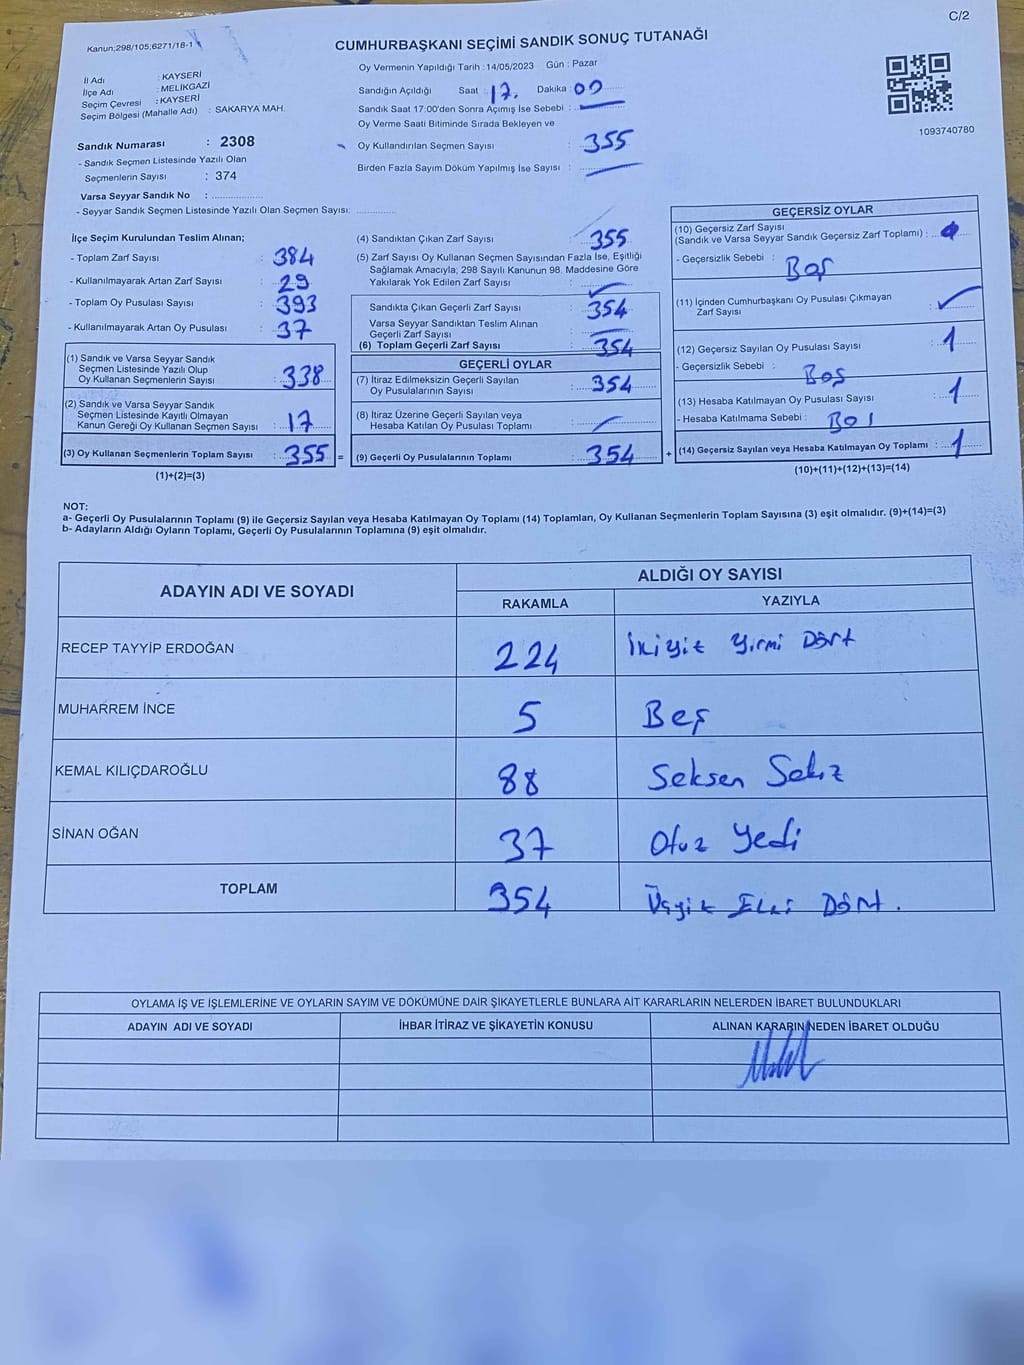 C/2
Kanun;298/105;6271/18-1
CUMHURBAŞKANI SEÇİMİ SANDIK SONUÇ TUTANAĞI
İl Adı : KAYSERİ
İlçe Adı : MELİKGAZİ
Seçim Çevresi : KAYSERİ
Seçim Bölgesi (Mahalle Adı) : SAKARYA MAH.
Sandık Numarası : 2308
- Sandık Seçmen Listesinde Yazılı Olan
Seçmenlerin Sayısı : 374
Varsa Seyyar Sandık No : ................
- Seyyar Sandık Seçmen Listesinde Yazılı Olan Seçmen Sayısı: ............
Oy Vermenin Yapıldığı Tarih :14/05/2023 Gün : Pazar
Sandığın Açıldığı Saat : 17. Dakika : 00
Sandık Saat 17:00'den Sonra Açımış İse Sebebi :
Oy Verme Saati Bitiminde Sırada Bekleyen ve
Oy Kullandırılan Seçmen Sayısı : 355
Birden Fazla Sayım Döküm Yapılmış İse Sayısı :
1093740780
İlçe Seçim Kurulundan Teslim Alınan;
- Toplam Zarf Sayısı : 384
- Kullanılmayarak Artan Zarf Sayısı : 29
- Toplam Oy Pusulası Sayısı : 393
- Kullanılmayarak Artan Oy Pusulası : 37
(1) Sandık ve Varsa Seyyar Sandık
Seçmen Listesinde Yazılı Olup
Oy Kullanan Seçmenlerin Sayısı : 338
(2) Sandık ve Varsa Seyyar Sandık
Seçmen Listesinde Kayıtlı Olmayan
Kanun Gereği Oy Kullanan Seçmen Sayısı : 17
(3) Oy Kullanan Seçmenlerin Toplam Sayısı : 355 =
(1)+(2)=(3)
(4) Sandıktan Çıkan Zarf Sayısı : 355
(5) Zarf Sayısı Oy Kullanan Seçmen Sayısından Fazla İse, Eşitliği
Sağlamak Amacıyla; 298 Sayılı Kanunun 98. Maddesine Göre
Yakılarak Yok Edilen Zarf Sayısı :
Sandıkta Çıkan Geçerli Zarf Sayısı : 354
Varsa Seyyar Sandıktan Teslim Alınan
Geçerli Zarf Sayısı :
(6) Toplam Geçerli Zarf Sayısı : 354
GEÇERLİ OYLAR
(7) İtiraz Edilmeksizin Geçerli Sayılan
Oy Pusulalarının Sayısı : 354
(8) İtiraz Üzerine Geçerli Sayılan veya
Hesaba Katılan Oy Pusulası Toplamı :
(9) Geçerli Oy Pusulalarının Toplamı : 354 +
GEÇERSİZ OYLAR
(10) Geçersiz Zarf Sayısı
(Sandık ve Varsa Seyyar Sandık Geçersiz Zarf Toplamı) :
- Geçersizlik Sebebi : Boş
(11) İçinden Cumhurbaşkanı Oy Pusulası Çıkmayan
Zarf Sayısı :
(12) Geçersiz Sayılan Oy Pusulası Sayısı : 1
- Geçersizlik Sebebi : Boş
(13) Hesaba Katılmayan Oy Pusulası Sayısı : 1
- Hesaba Katılmama Sebebi : Boş
(14) Geçersiz Sayılan veya Hesaba Katılmayan Oy Toplamı : 1
(10)+(11)+(12)+(13)=(14)
NOT:
a- Geçerli Oy Pusulalarının Toplamı (9) ile Geçersiz Sayılan veya Hesaba Katılmayan Oy Toplamı (14) Toplamları, Oy Kullanan Seçmenlerin Toplam Sayısına (3) eşit olmalıdır. (9)+(14)=(3)
b- Adayların Aldığı Oyların Toplamı, Geçerli Oy Pusulalarının Toplamına (9) eşit olmalıdır.
ADAYIN ADI VE SOYADI ALDIĞI OY SAYISI
RAKAMLA YAZIYLA
RECEP TAYYİP ERDOĞAN 224 İkiyüz Yirmi Dört
MUHARREM İNCE 5 Beş
KEMAL KILIÇDAROĞLU 88 Seksen Sekiz
SİNAN OĞAN 37 Otuz Yedi
TOPLAM 354 Üçyüz Elli Dört.
OYLAMA İŞ VE İŞLEMLERİNE VE OYLARIN SAYIM VE DÖKÜMÜNE DAİR ŞİKAYETLERLE BUNLARA AİT KARARLARIN NELERDEN İBARET BULUNDUKLARI
ADAYIN ADI VE SOYADI İHBAR İTİRAZ VE ŞİKAYETİN KONUSU ALINAN KARARIN NEDEN İBARET OLDUĞU